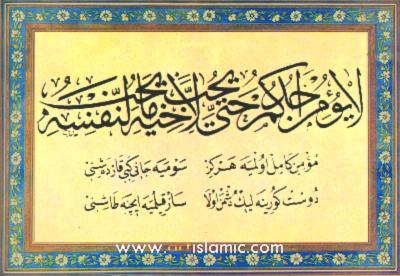 لا يؤمن احدكم حتى يحب لاخيه ما يحب لنفسه
مؤمن كامل اولميه هركز سوميه جانى كبى قارده شنى
دوست كورينه ليك دشمن اولا ايچنه طاشنى
www.artislamic.com